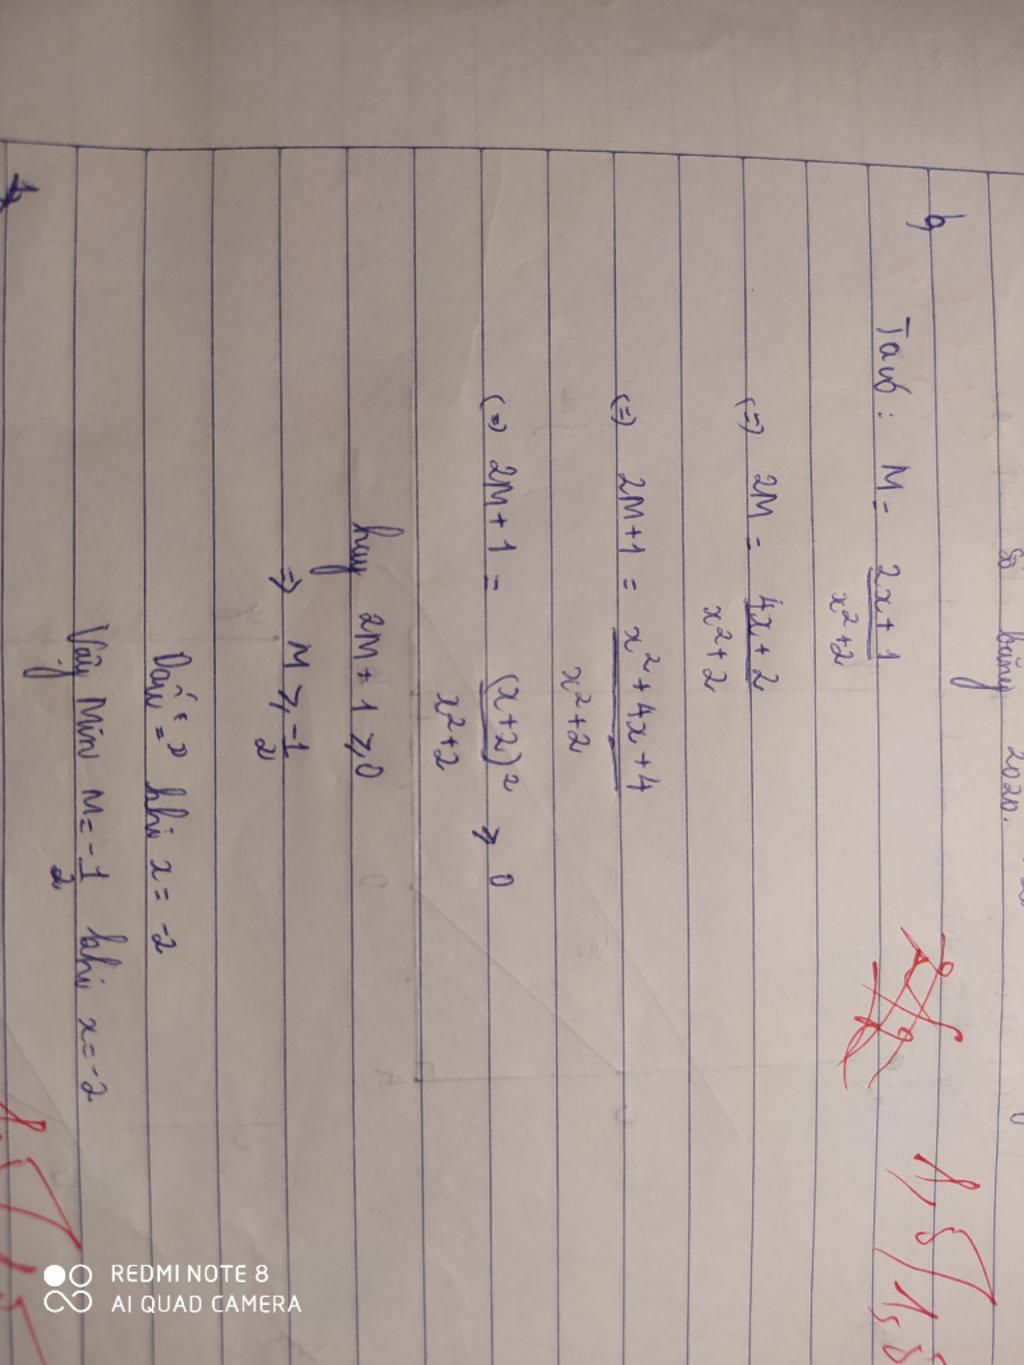 bằng 2020.
b,
Ta có : M = 2x+1 / x²+2
(=) 2M = 4x+2 / x²+2
(=) 2M+1 = x²+4x+4 / x²+2
(=) 2M+1 = (x+2)² / x²+2 ⩾ 0
hay 2M+1 ⩾ 0
=) M ⩾ -1/2
Dấu "=" khi x = -2
Vậy Min M = -1/2 khi x = -2
1,5/1,5
REDMI NOTE 8
AI QUAD CAMERA